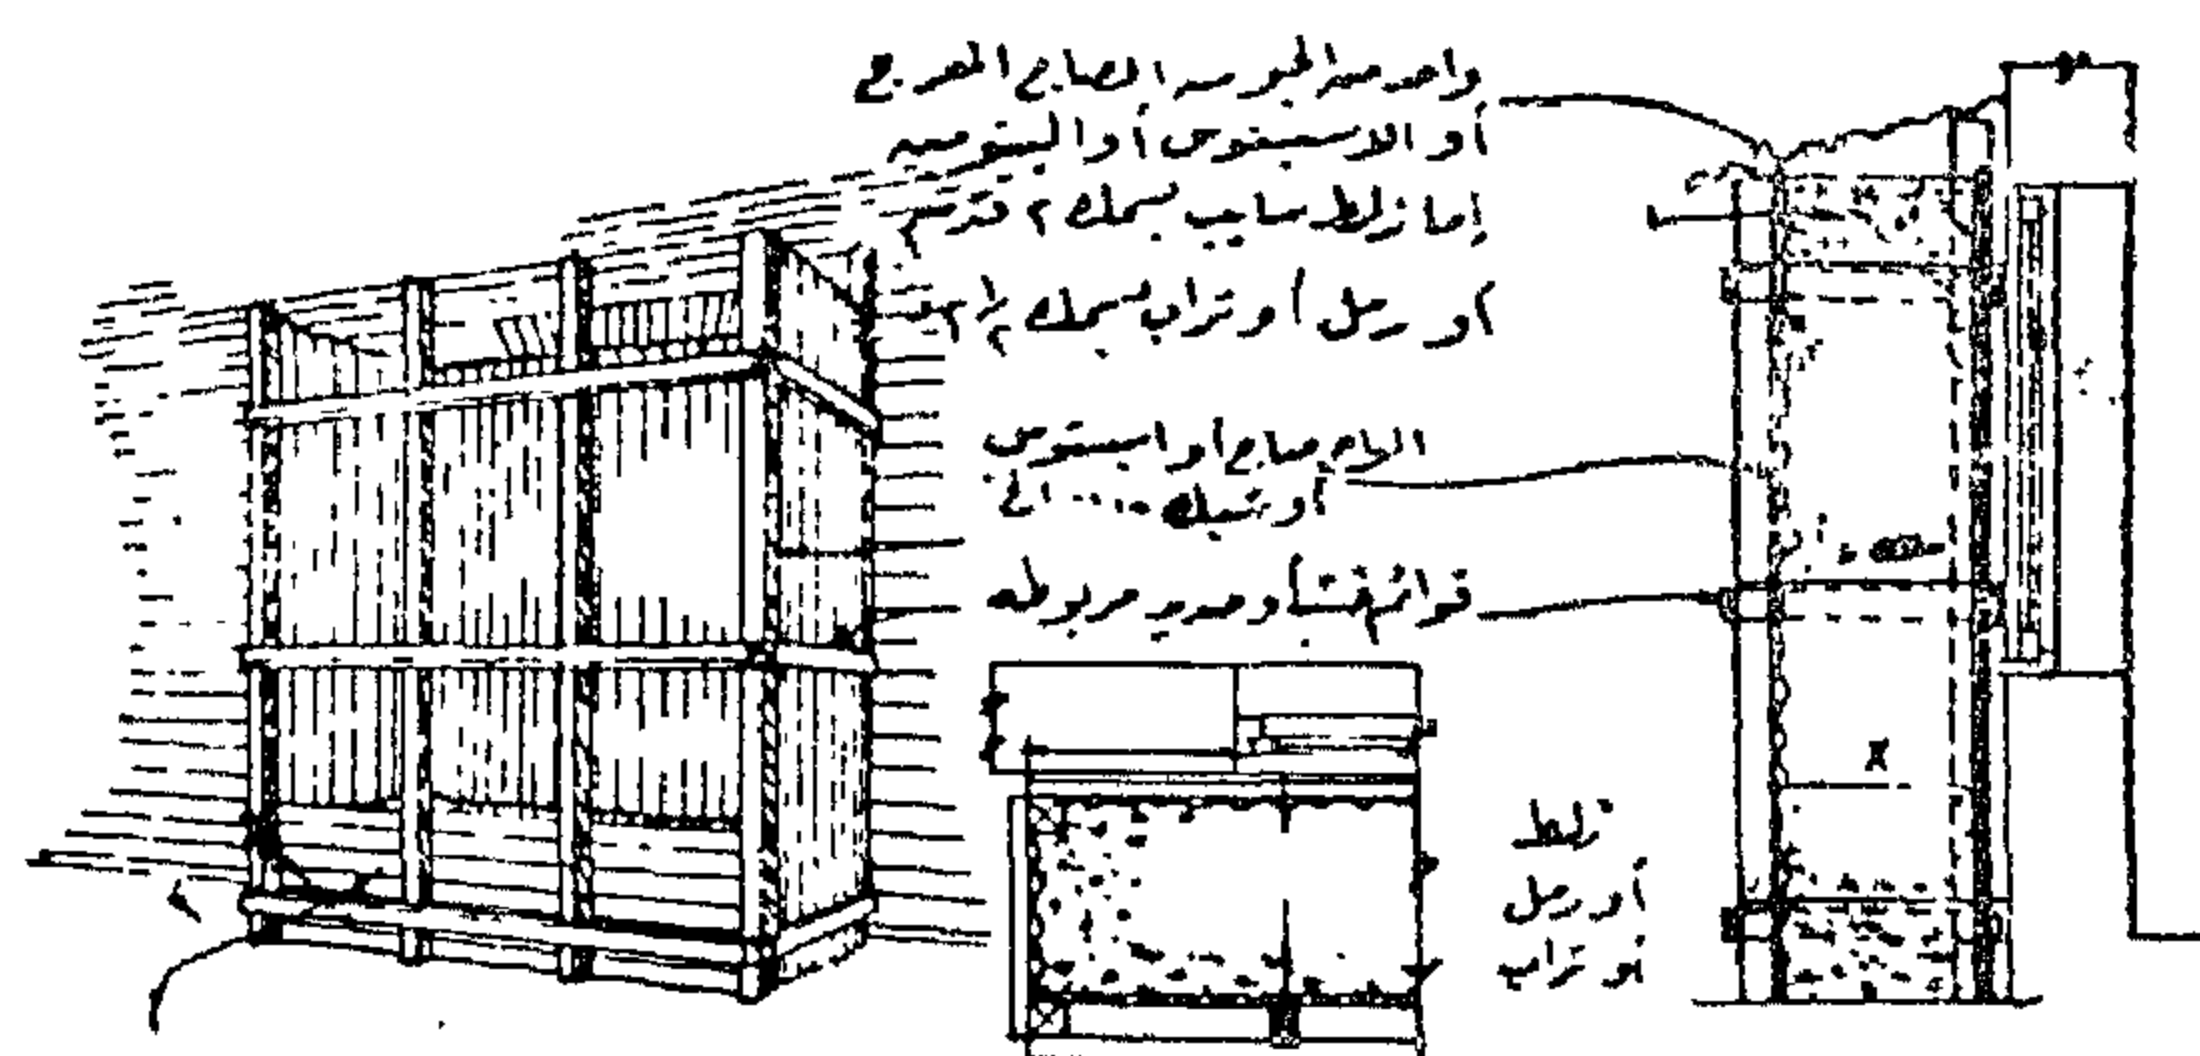 واحد من الجو من الصاج المعرج
أو الاسبستوس أو البيتومين
إما زلط سايب بسمك ٢ قدم
أو رمل أو تراب بسمك
الواح صاج أو اسبستوس
أو شبك .... الخ
قوائم خشب أو حديد مربوطه
زلط
أو رمل
أو تراب
X